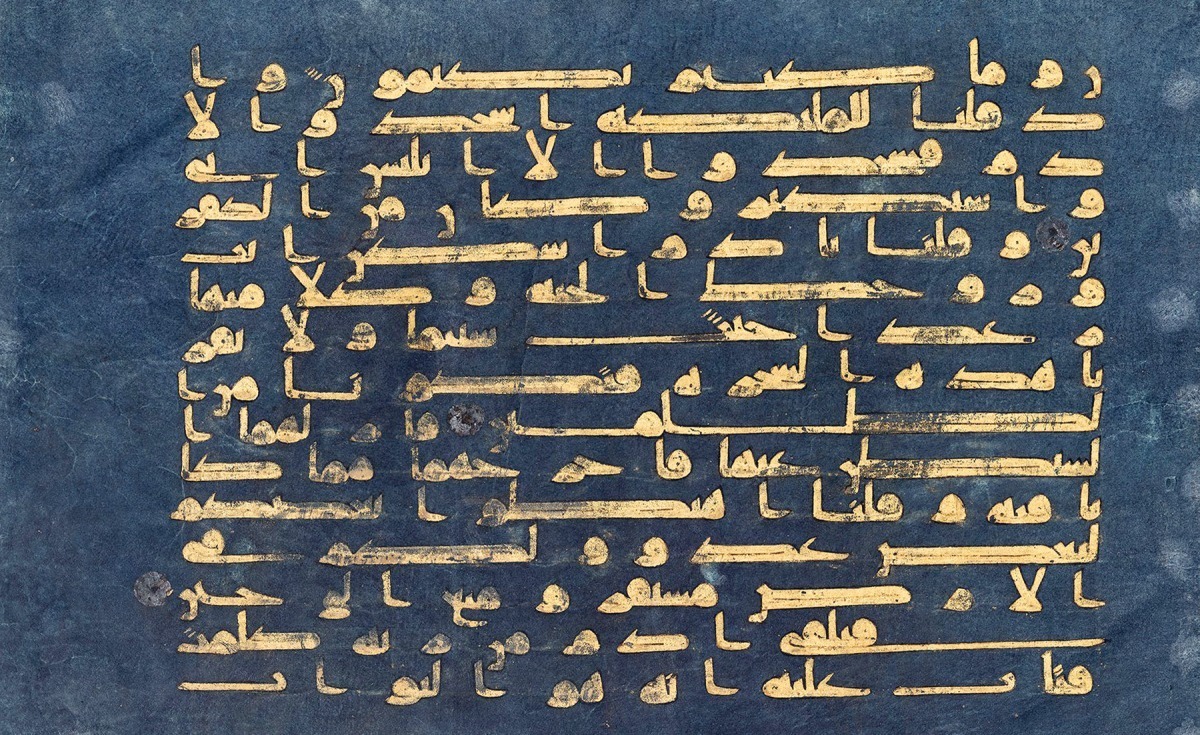 ن وما كنتم تكتمون وا
ذ قلنا للملئكة اسجدوا لا
دم فسجدوا الا ابليس ابى
واستكبر وكان من الكفر
ين وقلنا يادم اسكن ا نت
وزوجك الجنة وكلا منها
رغدا حيث شئتما ولا تقر
با هذه الشجرة فتكونا من ا
لظلمين فازلهما ا
لشيطن عنها فاخرجهما مما كا
نا فيه وقلنا اهبطوا بعضكم
لبعض عدو ولكم في
الارض مستقر ومتع الى حين
فتلقى ادم من ربه كلمت
فتاب عليه انه هو التواب